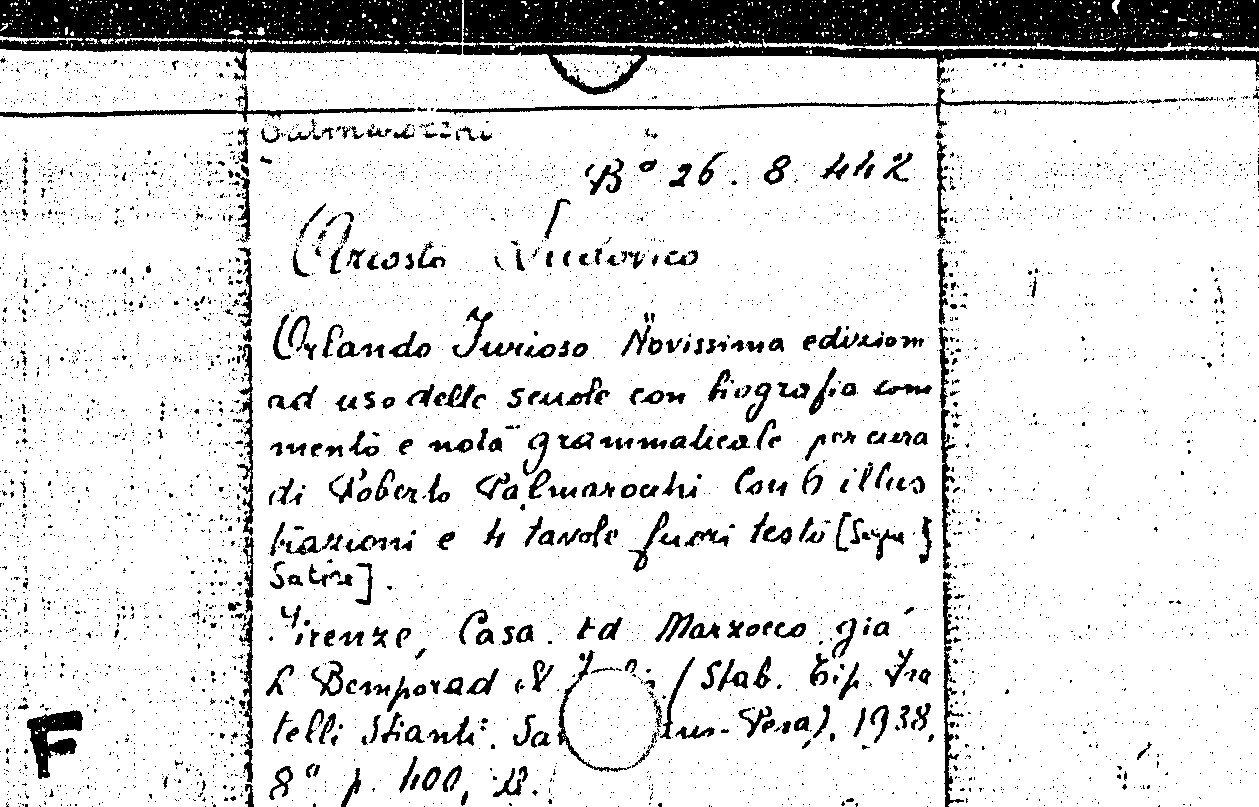 Palmarocchi
B° 26. 8. 442
Ariosto Ludovico
Orlando Furioso Novissima edizione
ad uso delle scuole con biografia com
mento e nota grammaticale per cura
di Roberto Palmarocchi Con 6 illus
trazioni e 4 tavole fuori testo [Segue]
Satire].
Firenze, Casa. Ed Marzocco già
R Bemporad & F (Stab. Tip. Fra
telli Stianti. Sa Pesa). 1938,
8° p. 400,
F